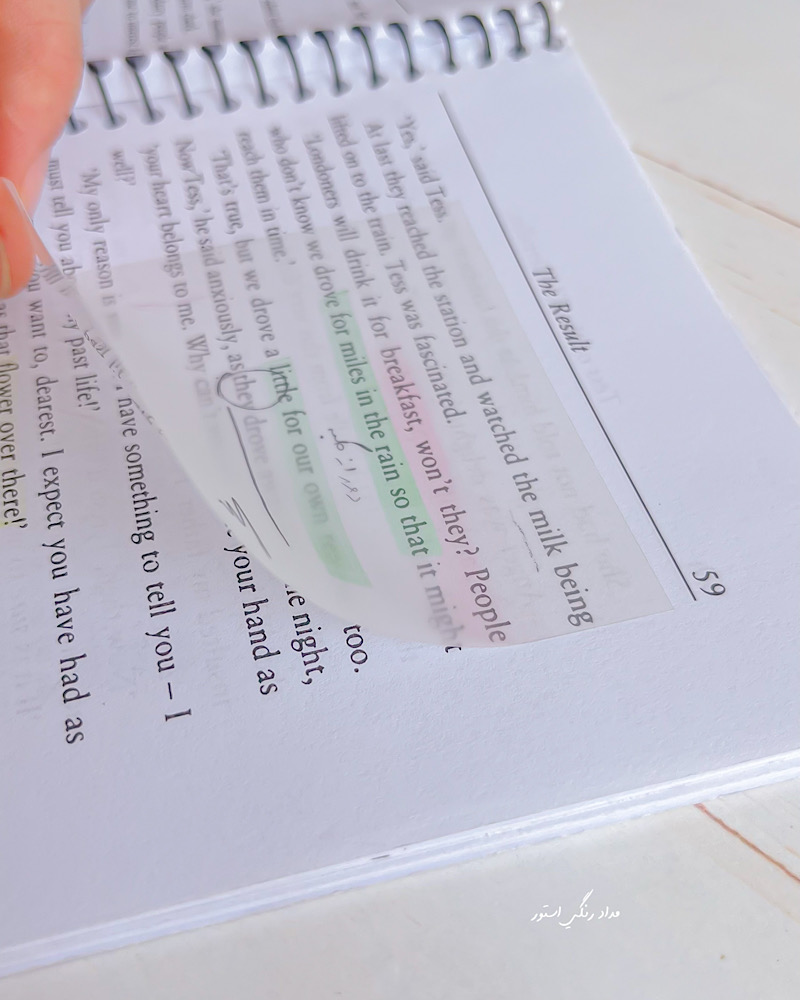 The Result 59
'Yes,' said Tess.
At last they reached the station and watched the milk being
lifted on to the train. Tess was fascinated.
'Londoners will drink it for breakfast, won't they? People
who don't know we drove for miles in the rain so that it might
reach them in time.'
'That's true, but we drove a little for our own too.
Now Tess,' he said anxiously, as they drove night,
'your heart belongs to me. Why can't your hand as
well?'
'My only reason is have something to tell you – I
must tell you past life!'
want to, dearest. I expect you have had as
that flower over there!'
مداد رنگي استور